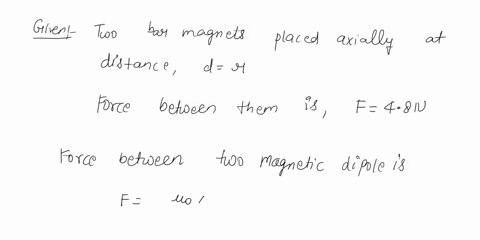 Given:- Two bar magnets placed axially at
distance, d = r
Force between them is, F = 4.8N
Force between two magnetic dipole is
F = μ0